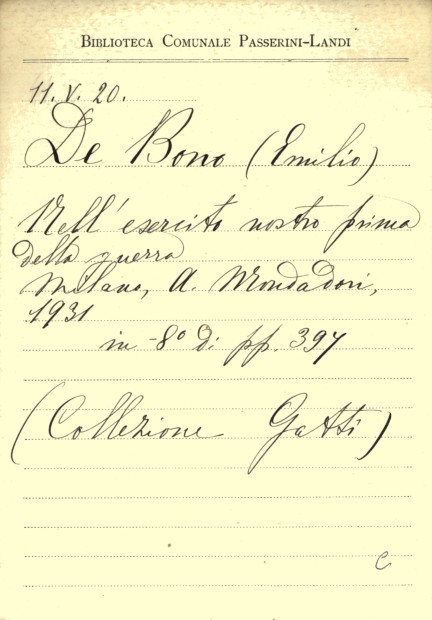 BIBLIOTECA COMUNALE PASSERINI-LANDI
11.V.20.
De Bono (Emilio)
Nell'esercito nostro prima
della guerra
Milano, A. Mondadori,
1931
in-8º di pp. 397
(Collezione Gatti)
C